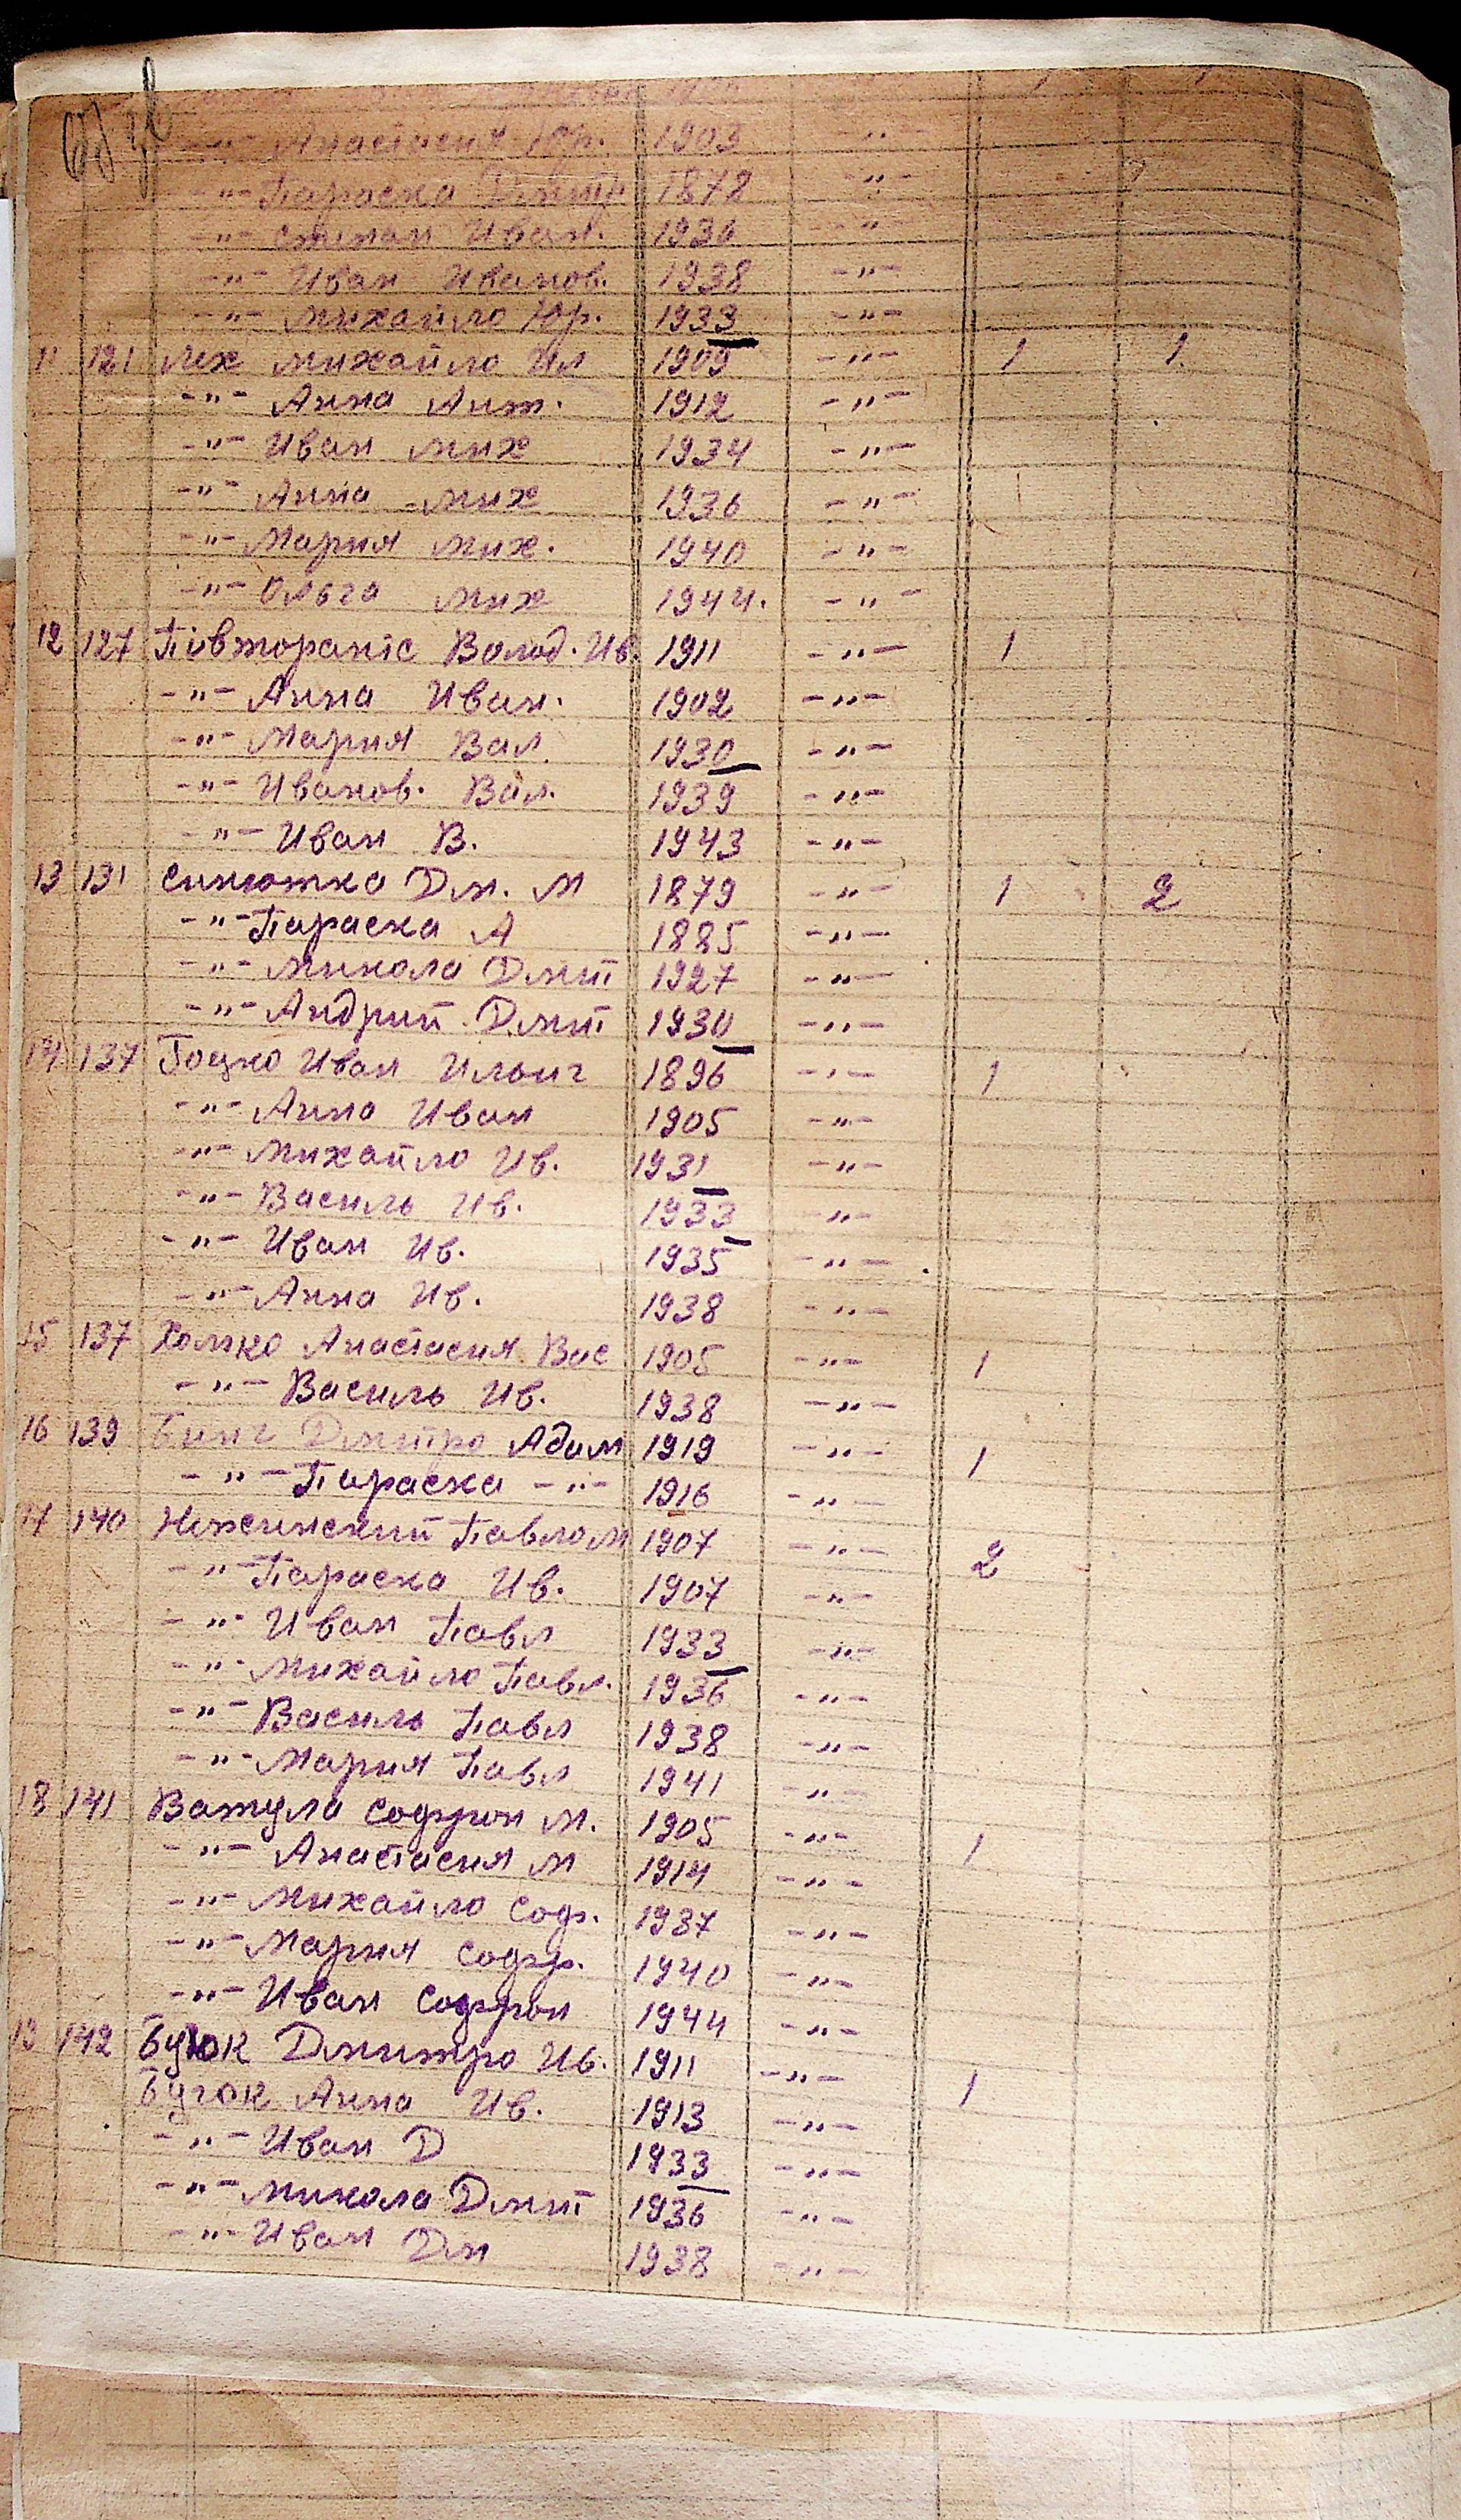 -"- Анастасия Юр. 1903 -"-
-"- Параска Дмит 1872 -"-
-"- Степан Иван. 1936 -"-
-"- Иван Иванов. 1938 -"-
-"- Михайло Юр. 1933 -"-
11 121 Лех Михайло Ил 1909 -"- 1 1
-"- Анна Ант. 1912 -"-
-"- Иван Мих 1934 -"-
-"- Анна Мих 1936 -"-
-"- Мария Мих. 1940 -"-
-"- Ольга Мих 1944. -"-
12 127 Півтораніс Волод. Ив. 1911 -"- 1
-"- Анна Иван. 1902 -"-
-"- Мария Вол. 1930 -"-
-"- Иванов. Вол. 1939 -"-
-"- Иван В. 1943 -"-
13 131 Синютка Дм. М 1879 -"- 1 2
-"- Параска А 1885 -"-
-"- Микола Дмит 1927 -"-
-"- Андрий Дмит 1930 -"-
14 137 Гоцко Иван Ильич 1896 -"- 1
-"- Анна Иван 1905 -"-
-"- Михайло Ив. 1931 -"-
-"- Василь Ив. 1933 -"-
-"- Иван Ив. 1935 -"-
-"- Анна Ив. 1938 -"-
15 137 Холко Анастасия Вас 1905 -"- 1
-"- Василь Ив. 1938 -"-
16 139 Дмитро Адам 1919 -"- 1
-"- Параска -"- 1916 -"-
17 140 Нежинский Павло М 1907 -"- 2
-"- Параска Ив. 1907 -"-
-"- Иван Павл 1933 -"-
-"- Михайло Павл. 1936 -"-
-"- Василь Павл 1938 -"-
-"- Мария Павл 1941 -"-
18 141 Ватула Софрон М. 1905 -"- 1
-"- Анастасия М 1914 -"-
-"- Михайло Соф. 1937 -"-
-"- Мария Софр. 1940 -"-
-"- Иван Софрон 1944 -"-
19 142 Дмитро Ив. 1911 -"- 1
Анна Ив. 1913 -"-
-"- Иван Д 1933 -"-
-"- Микола Дмит 1936 -"-
-"- Иван Дм 1938 -"-